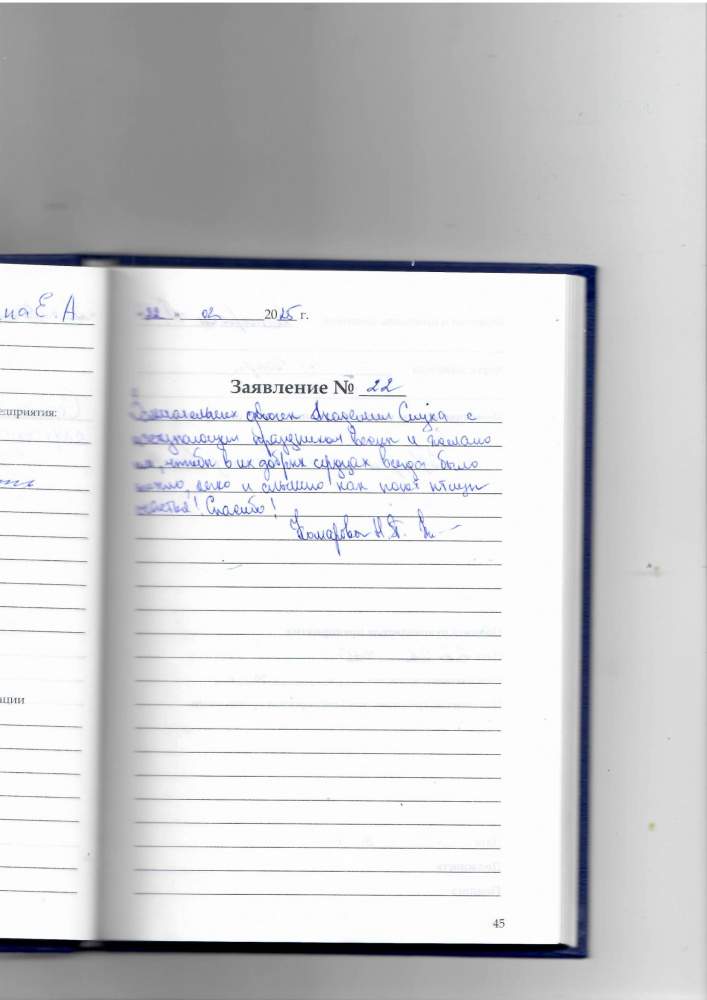 на Е. А
едприятия:
ации
"22" 02 2025 г.
Заявление № 22
девочек Академии Слуха с
наступающим праздником весны и
чтобы в их добрых сердцах всегда было
легко и слышно как поют птицы
счастья! Спасибо!
Комарова Н.П.
45